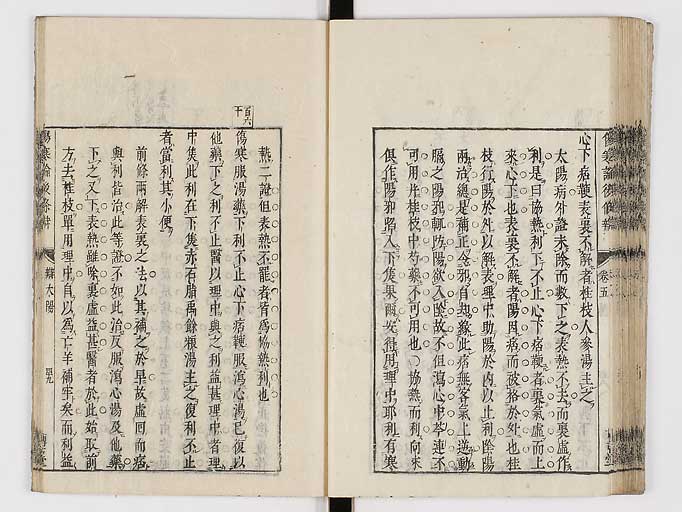 傷寒論後條辨 卷五
心下痞鞕表裏不解者桂枝人參湯主之
太陽病外證未除而數下之表熱不去而裏虛作
利是曰協熱利下不止心下痞鞕者裏氣虛而上
來心下也表裏不解者陽因痞而被格於外也桂
枝行陽於外以解表理中助陽於內以止利陰陽
兩治總是補正令邪自却緣此痞無客氣上逆動
膈之陽邪輒防陽欲入陰故不但瀉心中芩連不
可用并桂枝中芍藥不可用也協熱而利向來
俱作陽邪陷入下焦果爾安得用理中耶利有寒
熱二證但表熱不罷者皆爲協熱利也
百六十
傷寒服湯藥下利不止心下痞鞕服瀉心湯已復以
他藥下之利不止醫以理中與之利益甚理中者理
中焦此利在下焦赤石脂禹餘糧湯主之復利不止
者當利其小便
前條兩解表裏之法以其痞之於早故虛回而痞
與利皆治此等證不如此治反服瀉心湯及他藥
下之又下表熱雖除裏虛益甚醫者於此始取前
方去桂枝單用理中自以爲亡羊補牢矣而利益
傷寒論後條辨 辨太陽